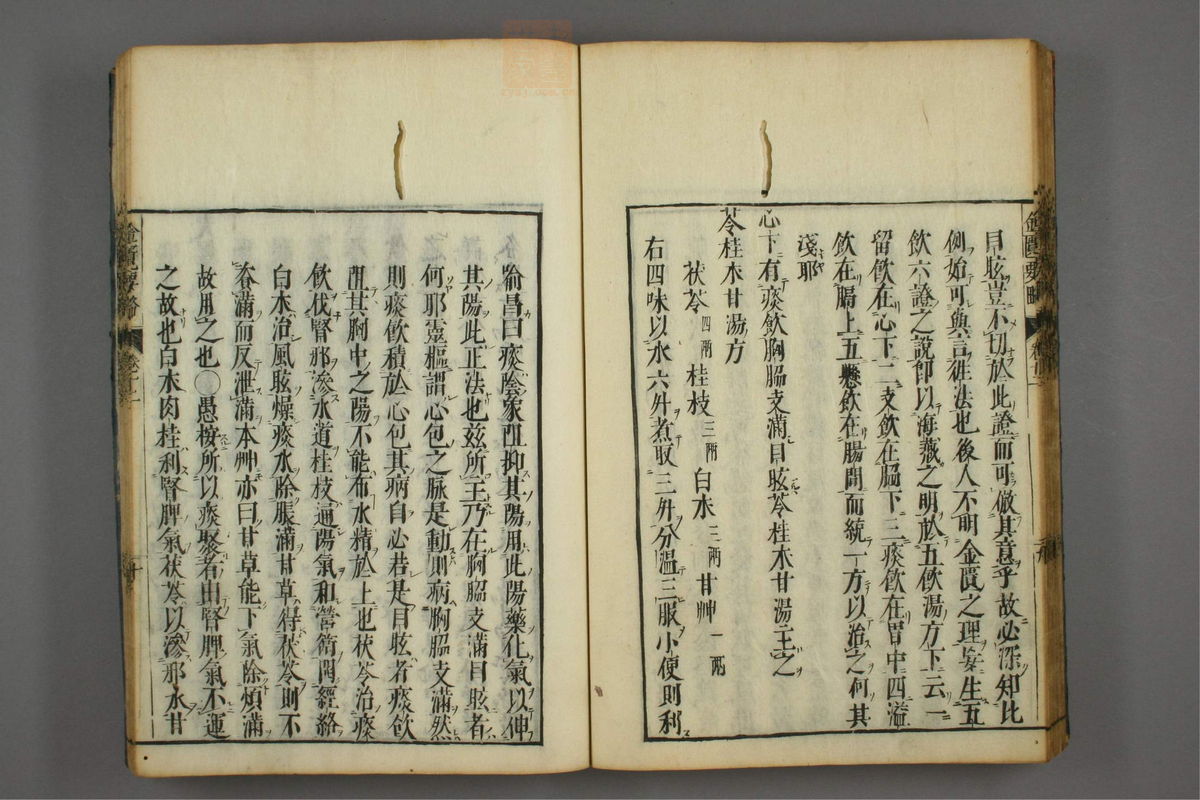 目眩豈不切於此證而可倣其意乎故必深知比
例始可與言徃法也後人不明金匱之理妄生五
飲六證之說卽以海藏之明於五飲湯方下云一
留飲在心下二支飲在脇下三痰飲在胃中四溢
飲在膈上五懸飲在腸間而統一方以治之何其
淺耶
心下有痰飲胸脇支滿目眩苓桂朮甘湯主之
苓桂朮甘湯方
茯苓四兩 桂枝三兩 白朮三兩 甘艸一兩
右四味以水六升煮取三升分温三服小便則利
喻昌曰痰陰象阻抑其陽用此陽藥化氣以伸
其陽此正法也兹所主乃在胸脇支滿目眩者
何耶靈樞謂心包之脉是動則病胸脇支滿然
則痰飲積於心包其病自必若是目眩者痰飲
阻其胸中之陽不能布水精於上也茯苓治痰
飲伐腎邪滲水道桂枝通陽氣和營衛開經絡
白朮治風眩燥痰水除脹滿甘草得茯苓則不
資滿而反泄滿本艸亦曰甘草能下氣除煩滿
故用之也○愚按所以痰聚者由腎脾氣不運
之故也白朮肉桂利腎脾氣茯苓以滲邪水甘
金匱要略 卷十二 十